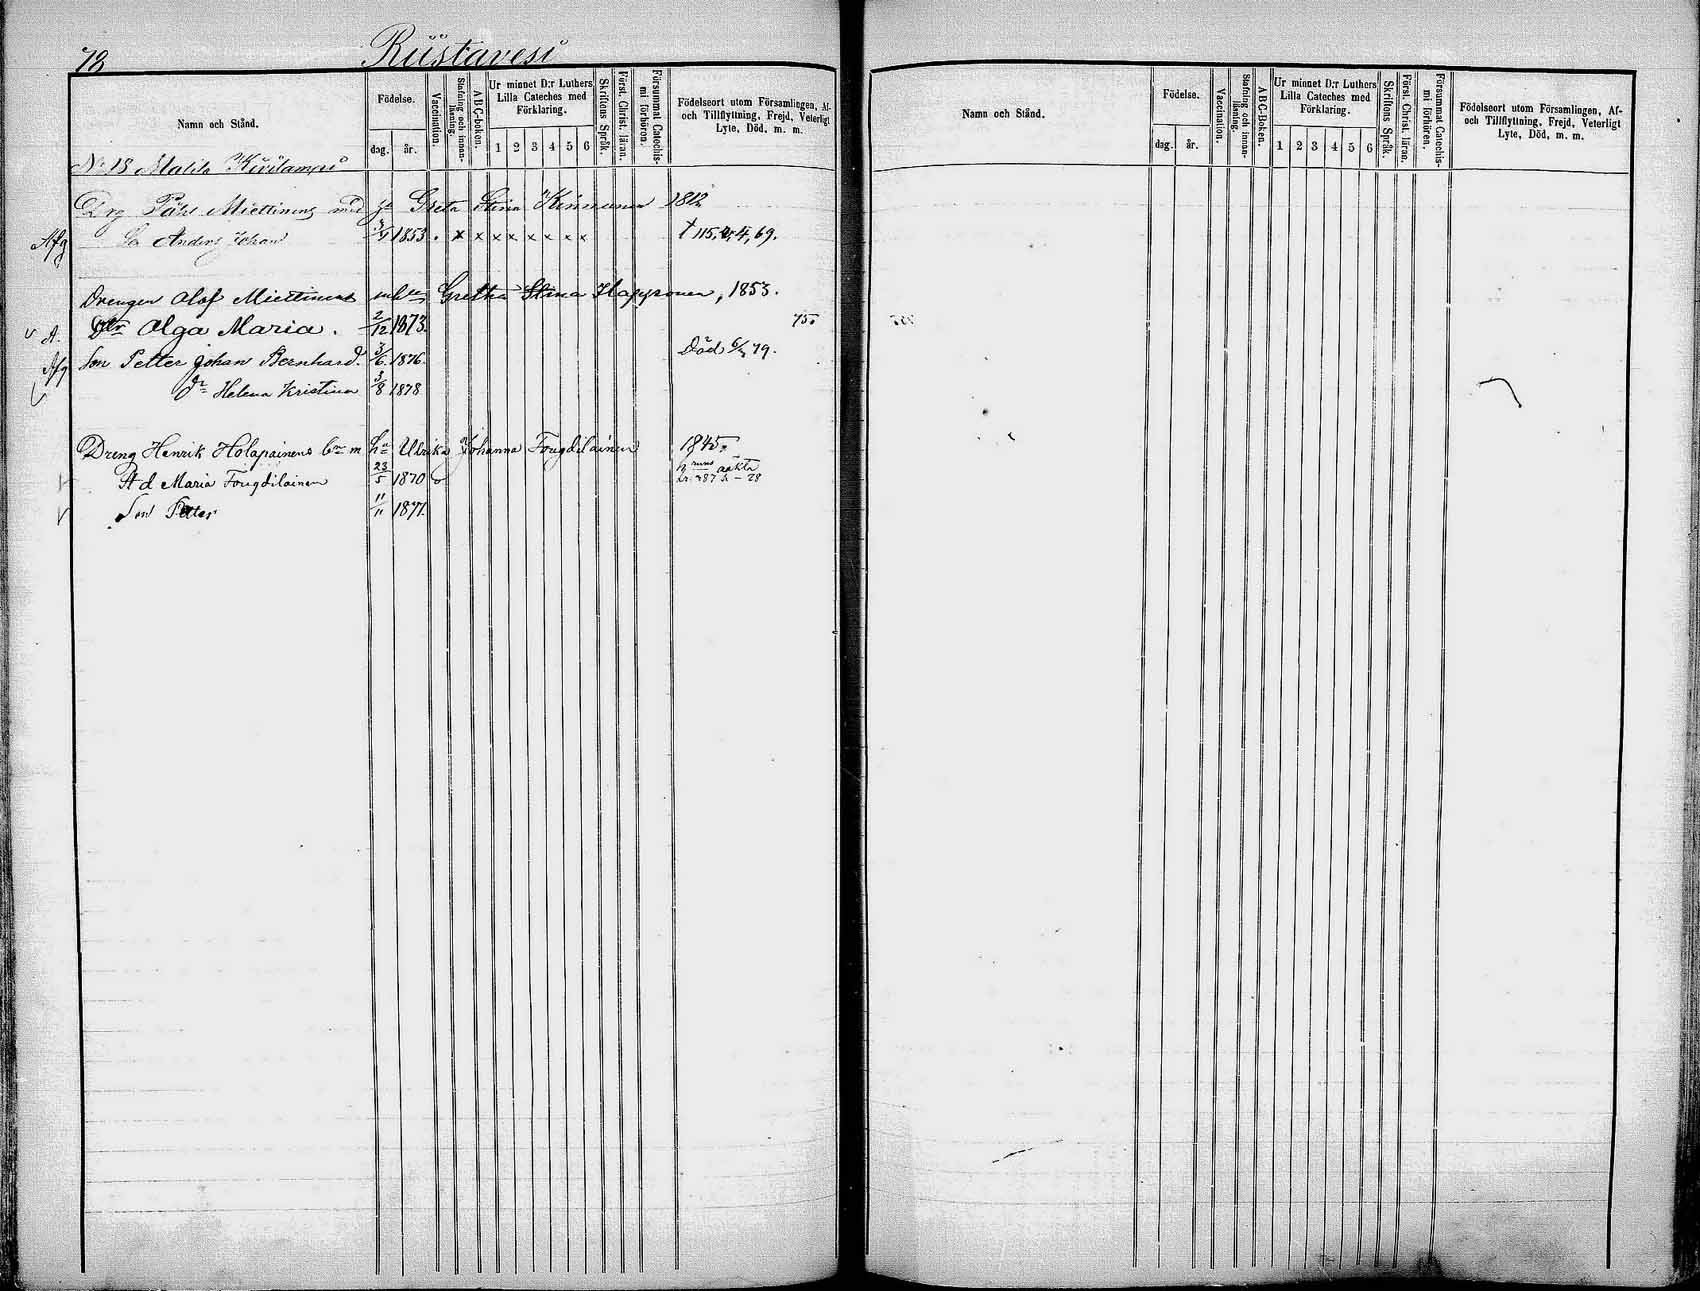 78 Riistavesi
Namn och Stånd.
Födelse.
dag. år.
Vaccination.
Stafning och innan-läsning.
ABC-boken.
Ur minnet D:r Luthers Lilla Cateches med Förklaring.
1 2 3 4 5 6
Skriftens Språk.
Först. Christ. läran.
Försummat Catechis-mi förhören.
Födelseort utom Församlingen, Af- och Tillflyttning, Frejd, Veterligt Lyte, Död, m. m.
No 18 Malila
Drg Påhl Miettinens med Greta Stina Kinnunen 1812
Afg So Anders Johan 3/9 1853 . x x x x x x x x † 69.
Drengen Olof Miettinens Gretha Stina Happonen, 1853.
A. Dtr Olga Maria. 2/12 1873. 75.
Afg Son Petter Johan Bernhard. 3/6 1876. Död 79.
Dr Helena Kristina 3/8 1878
Dreng Henrik Holapainens m Ulrika Johanna Fougdilainen 1845.
Maria Fougdilainen 23/5 1870
Son Petter 11/11 1877.
Namn och Stånd.
Födelse.
dag. år.
Vaccination.
Stafning och innan-läsning.
ABC-Boken.
Ur minnet D:r Luthers Lilla Cateches med Förklaring.
1 2 3 4 5 6
Skriftens Språk.
Först. Christ. läran.
Försummat Catechis-mi förhören.
Födelseort utom Församlingen, Af- och Tillflyttning, Frejd, Veterligt Lyte, Död, m. m.